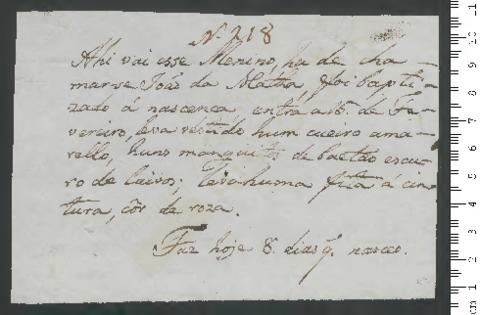 N. 218
Ahi vai esse Menino, ha de cha-
mar-se João da Matha, foi bapti-
zado á nascença entra a 16. de Fe-
vereiro, leva vestido hum cueiro ama-
rello, huns manguitos de baetão escu-
ro de laivos; leva huma fita á cin-
tura, côr de roza.
Faz hoje 8. dias q. nasceo.